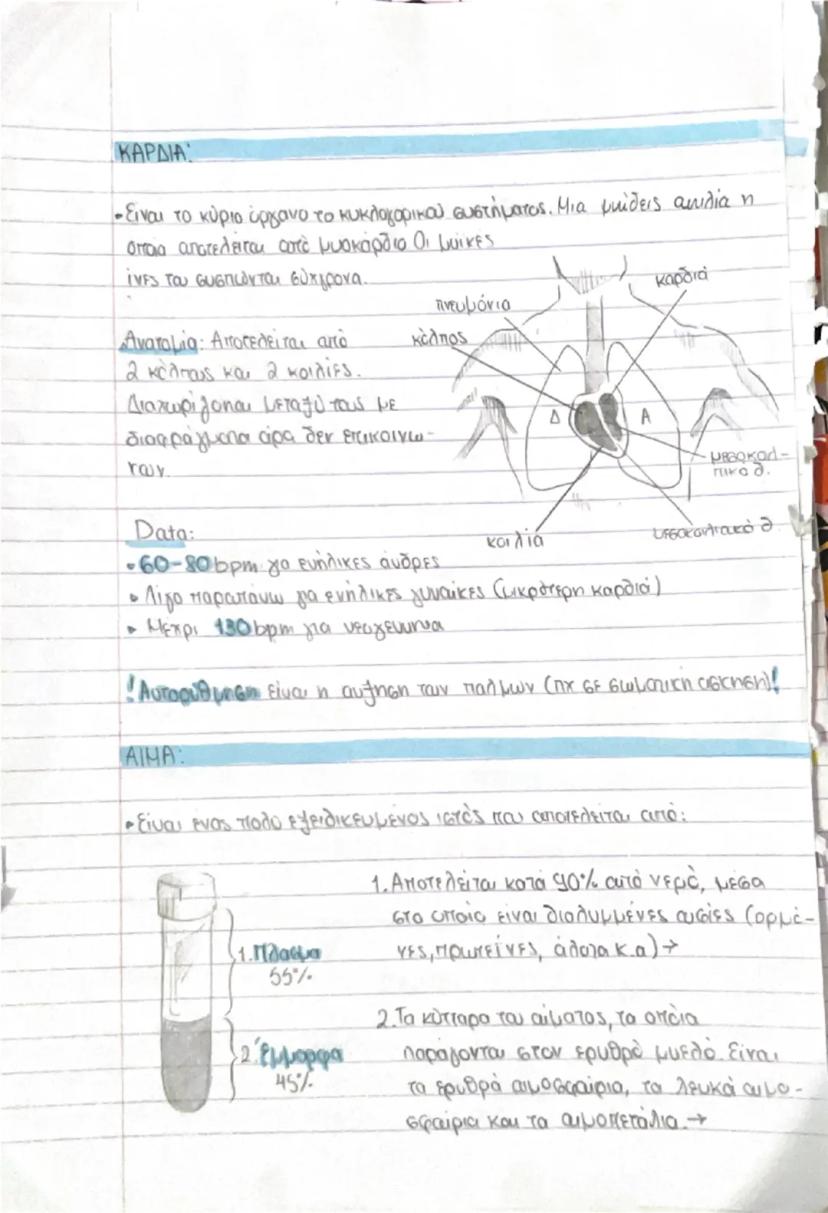 ΚΑΡΔΙΑ:
• Είναι το κύριο όργανο το κυκλοφορικού συστήματος. Μια μυώδεις αντλία η
οποία αποτελείται από μυοκάρδιο Οι μυϊκες
ίνες του συσπώνται σύγχρονα.
πνευμόνια
καρδιά
κόλπος
Ανατομία: Αποτελείται από
2 κόλπους και 2 κοιλίες.
Διαχωρίζονται μεταξύ τους με
διαφράγματα άρα δεν επικοινω-
νουν.
Δ
Α
μεσοκολ-
πικο δ.
κοιλία
μεσοκοιλιακό δ.
Data:
• 60-80 bpm για ενήλικες άνδρες
• Λίγο παραπάνω για ενήλικες γυναίκες (μικρότερη καρδιά)
• Μέχρι 130 bpm για νεογέννητα
! Αυτορύθμιση είναι η αύξηση των παλμών (πχ σε σωματική άσκηση)!
ΑΙΜΑ:
• Είναι ένας πολύ εξειδικευμένος ιστός που αποτελείται από:
1. Πλάσμα
55%
1. Αποτελείται κατά 90% από νερό, μέσα
στο οποίο είναι διαλυμμένες ουσίες (ορμό-
νες, πρωτεΐνες, άλατα κ.α) →
2. Έμμορφα
45%
2. Τα κύτταρα του αίματος, τα οποία
παράγονται στον ερυθρό μυελό. Είναι
τα ερυθρά αιμοσφαίρια, τα λευκά αιμο-
σφαίρια και τα αιμοπετάλια. →